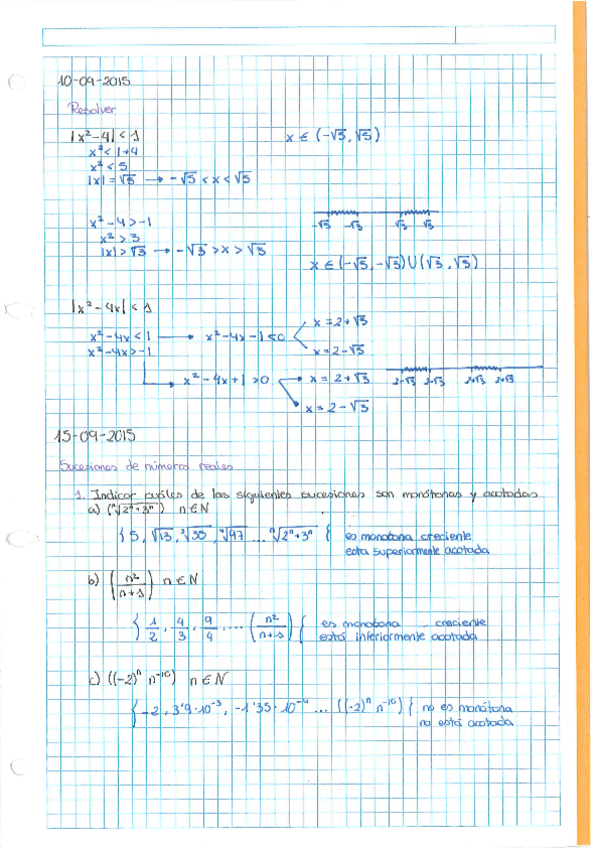 10-09-2015
Resolver
|x²-4| < 1
x² < 1+4
x² < 5
|x| = √5 → -√5 < x < √5
x ∈ (-√5, √5)
x²-4 > -1
x² > 3
|x| > √3 → -√3 > x > √3
-√5 -√3 √3 √5
x ∈ (-√5, -√3) ∪ (√3, √5)
|x²-4x| < 1
x²-4x < 1 → x²-4x-1 < 0
x = 2+√5
x = 2-√5
x²-4x > -1
x²-4x+1 > 0
x = 2+√3
x = 2-√3
2-√5 2-√3 2+√3 2+√5
15-09-2015
Sucesiones de números reales
1. Indicar cuáles de las siguientes sucesiones son monótonas y acotadas
a) (ⁿ√2ⁿ+3ⁿ) n ∈ N
{ 5, √13, ³√35, ⁴√97 ... ⁿ√2ⁿ+3ⁿ { es monotona creciente
esta superiormente acotada
b) (n²/n+1) n ∈ N
} 1/2, 4/3, 9/4, ... (n²/n+1) { es monotona creciente
está inferiormente acotada
c) ((-2)ⁿ n⁻¹⁰) n ∈ N
{ -2, 3'9·10⁻³, -1'35·10⁻⁴ ... ((-2)ⁿ n⁻¹⁰) { no es monótona
no está acotada